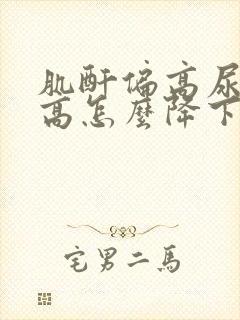 肌酐偏高尿
高怎麼降下
宅男二馬